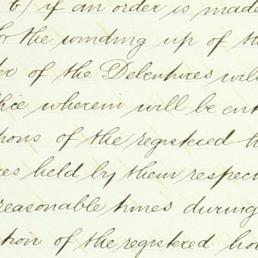 b) if an order is made
the winding up of the
of the Debentures will
wherein will be ent
ons of the registered h
es held by them respec
reasonable times during
tion of the registered hol